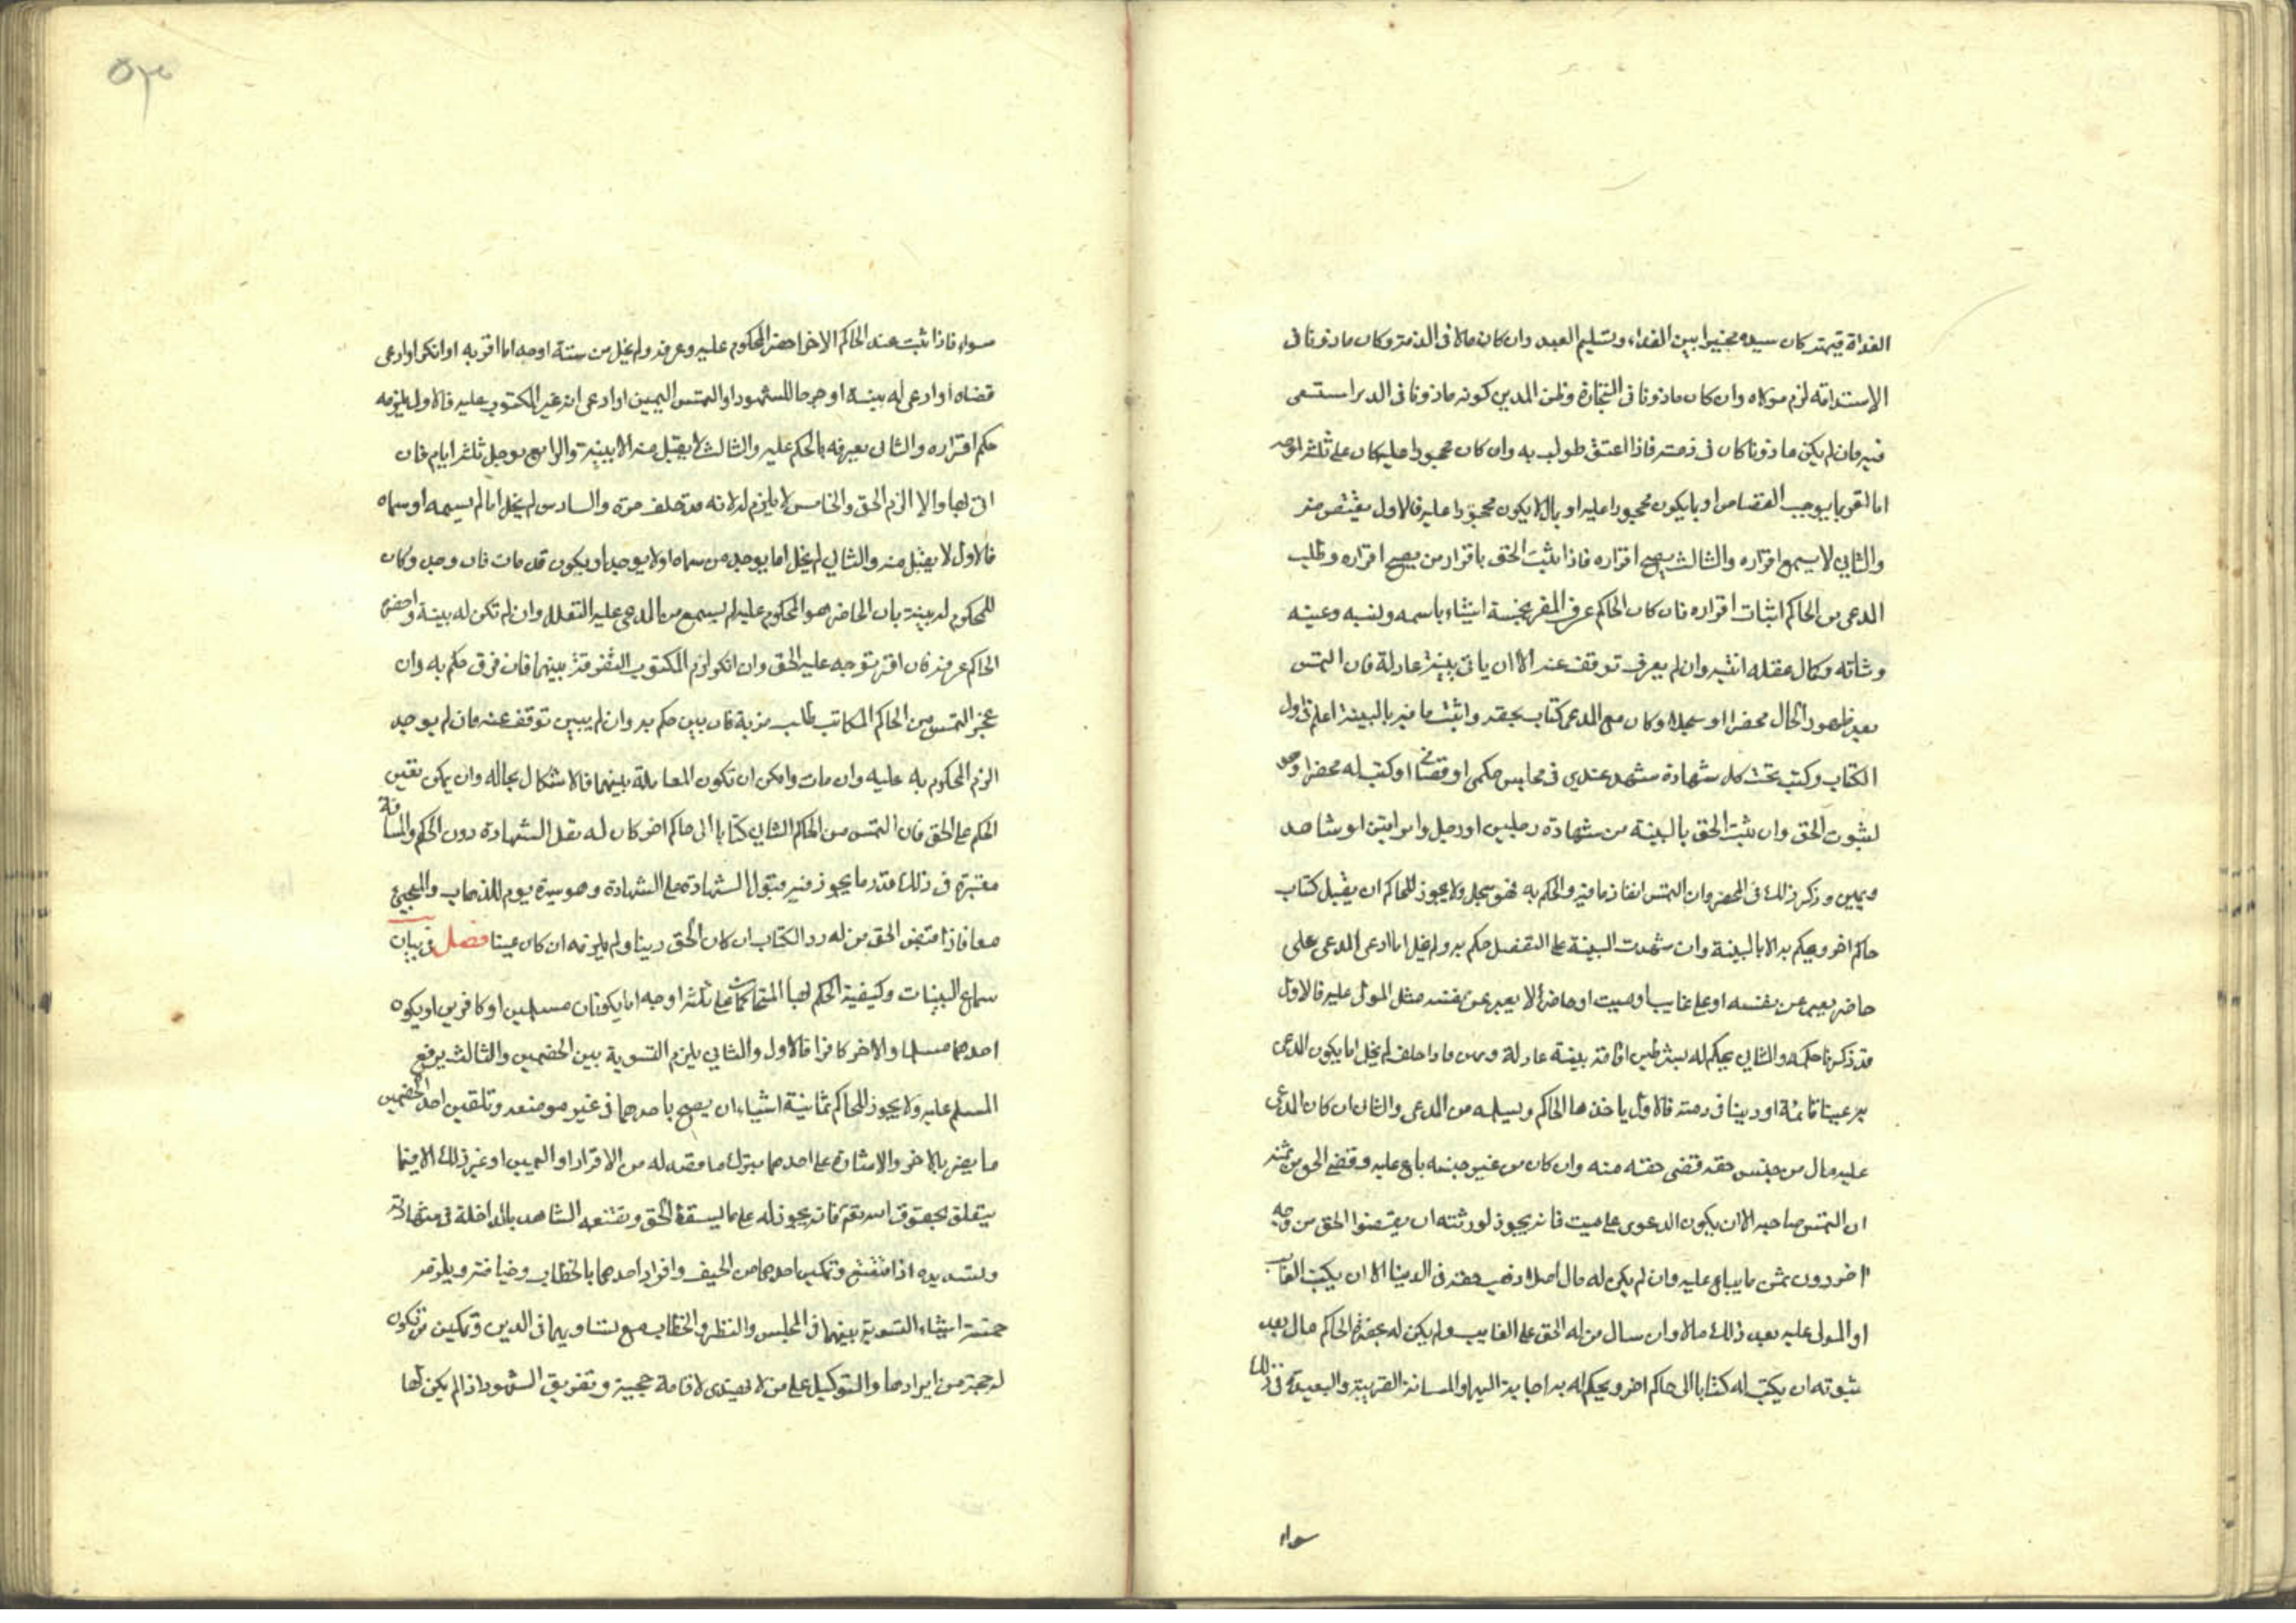 الفداة قيمته كان سيده مخيرا بين الفداء وتسليم العبد وان كان مالا فى الذمة وكان ماذونا فى
الاستدانة لزم مولاه وان كان ماذونا فى التجارة وظن المدين كونه ماذونا فى الدين استسعى
فيه فان لم يكن ماذونا كان فى ذمته فاذا اعتق طولب به وان كان محجورا عليه كان على ثلثة اوجه
اما اقر بما يوجب القصاص او بما يكون محجورا عليه او بما لا يكون محجورا عليه فالاول يقتص منه
والثاني لا يسمع اقراره والثالث يصح اقراره فاذا ثبت الحق باقرار من يصح اقراره وطلب
المدعى من الحاكم اثبات اقراره فان كان الحاكم عرف المقر بخمسة اشياء باسمه ونسبه وعينه
وشانه وكمال عقله اثبته وان لم يعرف توقف عنه الا ان ياتى ببينة عادلة فان التمس
بعد ظهور الحال محضرا او سجلا وكان مع المدعى كتاب بحقه واثبت ما فيه بالبينة اعلم فى اول
الكتاب وكتب تحت كل شهادة شهد عندي فى مجلس حكمى او قضائى او كتب له محضرا اوجه
لثبوت الحق وان ثبت الحق بالبينة من شهادة رجلين او رجل وامراتين او شاهد
ويمين وذكر ذلك فى المحضر وان التمس انفاذ ما فيه والحكم به فهو سجل ولا يجوز للحاكم ان يقبل كتاب
حاكم اخر ويحكم به الا بالبينة وان شهدت البينة على التفصيل حكم به ولم يخل اما ادعى المدعى على
حاضر يعبر عن نفسه او على غايب او ميت او حاضر لا يعبر عن نفسه مثل المولى عليه فالاول
قد ذكرنا حكمه والثاني يحكم له بشرطين اقامة بينة عادلة ويمين فاذا حلف لم يخل اما يكون المدعى
به عينا قائمة او دينا فى ذمته فالاول ياخذها الحاكم ويسلمه من المدعى والثانى ان كان للمدعى
عليه مال من جنس حقه قضى حقه منه وان كان من غير جنسه باع عليه وقضى الحق من ثمنه
ان التمس صاحبه الا ان يكون الدعوى على ميت فانه يجوز لورثته ان يقضوا الحق من وجه
اخر دون ثمن ما يباع عليه وان لم يكن له مال اصلا ذهب حقه فى الدنيا الا ان يكتب الغايب
او المولى عليه بعد ذلك مالا وان سال من له الحق على الغايب ولم يكن له بحضرة الحاكم مال بعد
ثبوته ان يكتب له كتابا الى حاكم اخر ويحكم له به اجابه اليه والمسافة القريبة والبعيدة فى ذلك
سواء
٥٣
سواء فاذا ثبت عند الحاكم الاخر احضر المحكوم عليه وعرفه ولم يخل من ستة اوجه اما اقر به او انكر او ادعى
قضاه او ادعى له بينة او جرحا للشهود او التمس اليمين او ادعى انه غير المكتوب عليه فالاول يلزمه
حكم اقراره والثانى يعرفه بالحكم عليه والثالث لا يقبل منه الا ببينة والرابع يوجل ثلثة ايام فان
اتى بها والا الزم الحق والخامس لا يلزم له لانه قد حلف مرة والسادس لم يخل اما لم يسمه او سماه
فالاول لا يقبل منه والثاني لم يخل اما يوجد من سماه او لا يوجد او يكون قد مات فان وجد وكان
للمحكوم له بينة بان الحاضر هو المحكوم عليه لم يسمع من المدعى عليه التعلل وان لم تكن له بينة واحضره
الحاكم عرفه فان اقر توجه عليه الحق وان انكر لزم المكتوب التفرقة بينهما فان فرق حكم به وان
عجز التمس من الحاكم المكاتب طلب مزية فان بين حكم به وان لم يبين توقف عنه فان لم يوجد
الزم المحكوم به عليه وان مات وامكن ان تكون المعاملة بينهما فالاشكال بحاله وان لم يمكن تعين
الحكم على الحق فان التمس من الحاكم الثاني كتابا الى حاكم اخر كان له نقل الشهادة دون الحكم والمسافة
معتبرة فى ذلك قدر ما يجوز فيه قبول الشهادة على الشهادة وهو مسيرة يوم للذهاب والمجيئ
معا فاذا قبض الحق من له رد الكتاب ان كان الحق دينا ولم يلزمه ان كان عينا فصل فى بيان
سماع البينات وكيفية الحكم بها المتحاكمان على ثلثة اوجه اما يكونان مسلمين او كافرين او يكون
احدهما مسلما والاخر كافرا فالاول والثاني يلزم التسوية بين الخصمين والثالث يرفع
المسلم عليه ولا يجوز للحاكم ثمانية اشياء ان يصيح باحدهما فى غير موضعه وتلقين احد الخصمين
ما يضر بالاخر والاشارة على احدهما بترك ما قصد له من الاقرار او اليمين او غير ذلك الا فيما
يتعلق بحقوق الله تعم فانه يجوز له على ما يسقط الحق وتتعتعه الشاهد بالمداخلة فى شهادته
وتسديده اذا تتعتع وتمكين احدهما من الحيف وافراد احدهما بالخطاب وضيافته ويلزمه
خمسة اشياء التسوية بينهما فى المجلس والنظر والخطاب مع تساويهما فى الدين وتمكين من تكون
له حجة من ايرادها والتوكيل على من لا يهتدى لاقامة حجته وتفريق الشهود اذا لم يكن لها